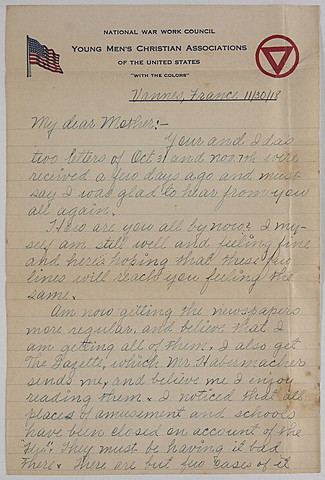 NATIONAL WAR WORK COUNCIL
YOUNG MEN'S CHRISTIAN ASSOCIATIONS
OF THE UNITED STATES
"WITH THE COLORS"
Vannes, France 11/30/18
My dear Mother:-
Your and Idas
two letters of Oct 31 and nov. 7th were
received a few days ago and must
say I was glad to hear from you
all again.
How are you all by now? I my-
self am still well and feeling fine
and here's hoping that these few
lines will reach you feeling the
same.
Am now getting the newspapers
more regular, and believe that I
am getting all of them. I also get
The Gazette, which Mr. Habermacher
sends me, and believe me I enjoy
reading them. I noticed that all
places of amusement and schools
have been closed on account of the
"Flu". They must be having it bad
there. There are but few cases of it